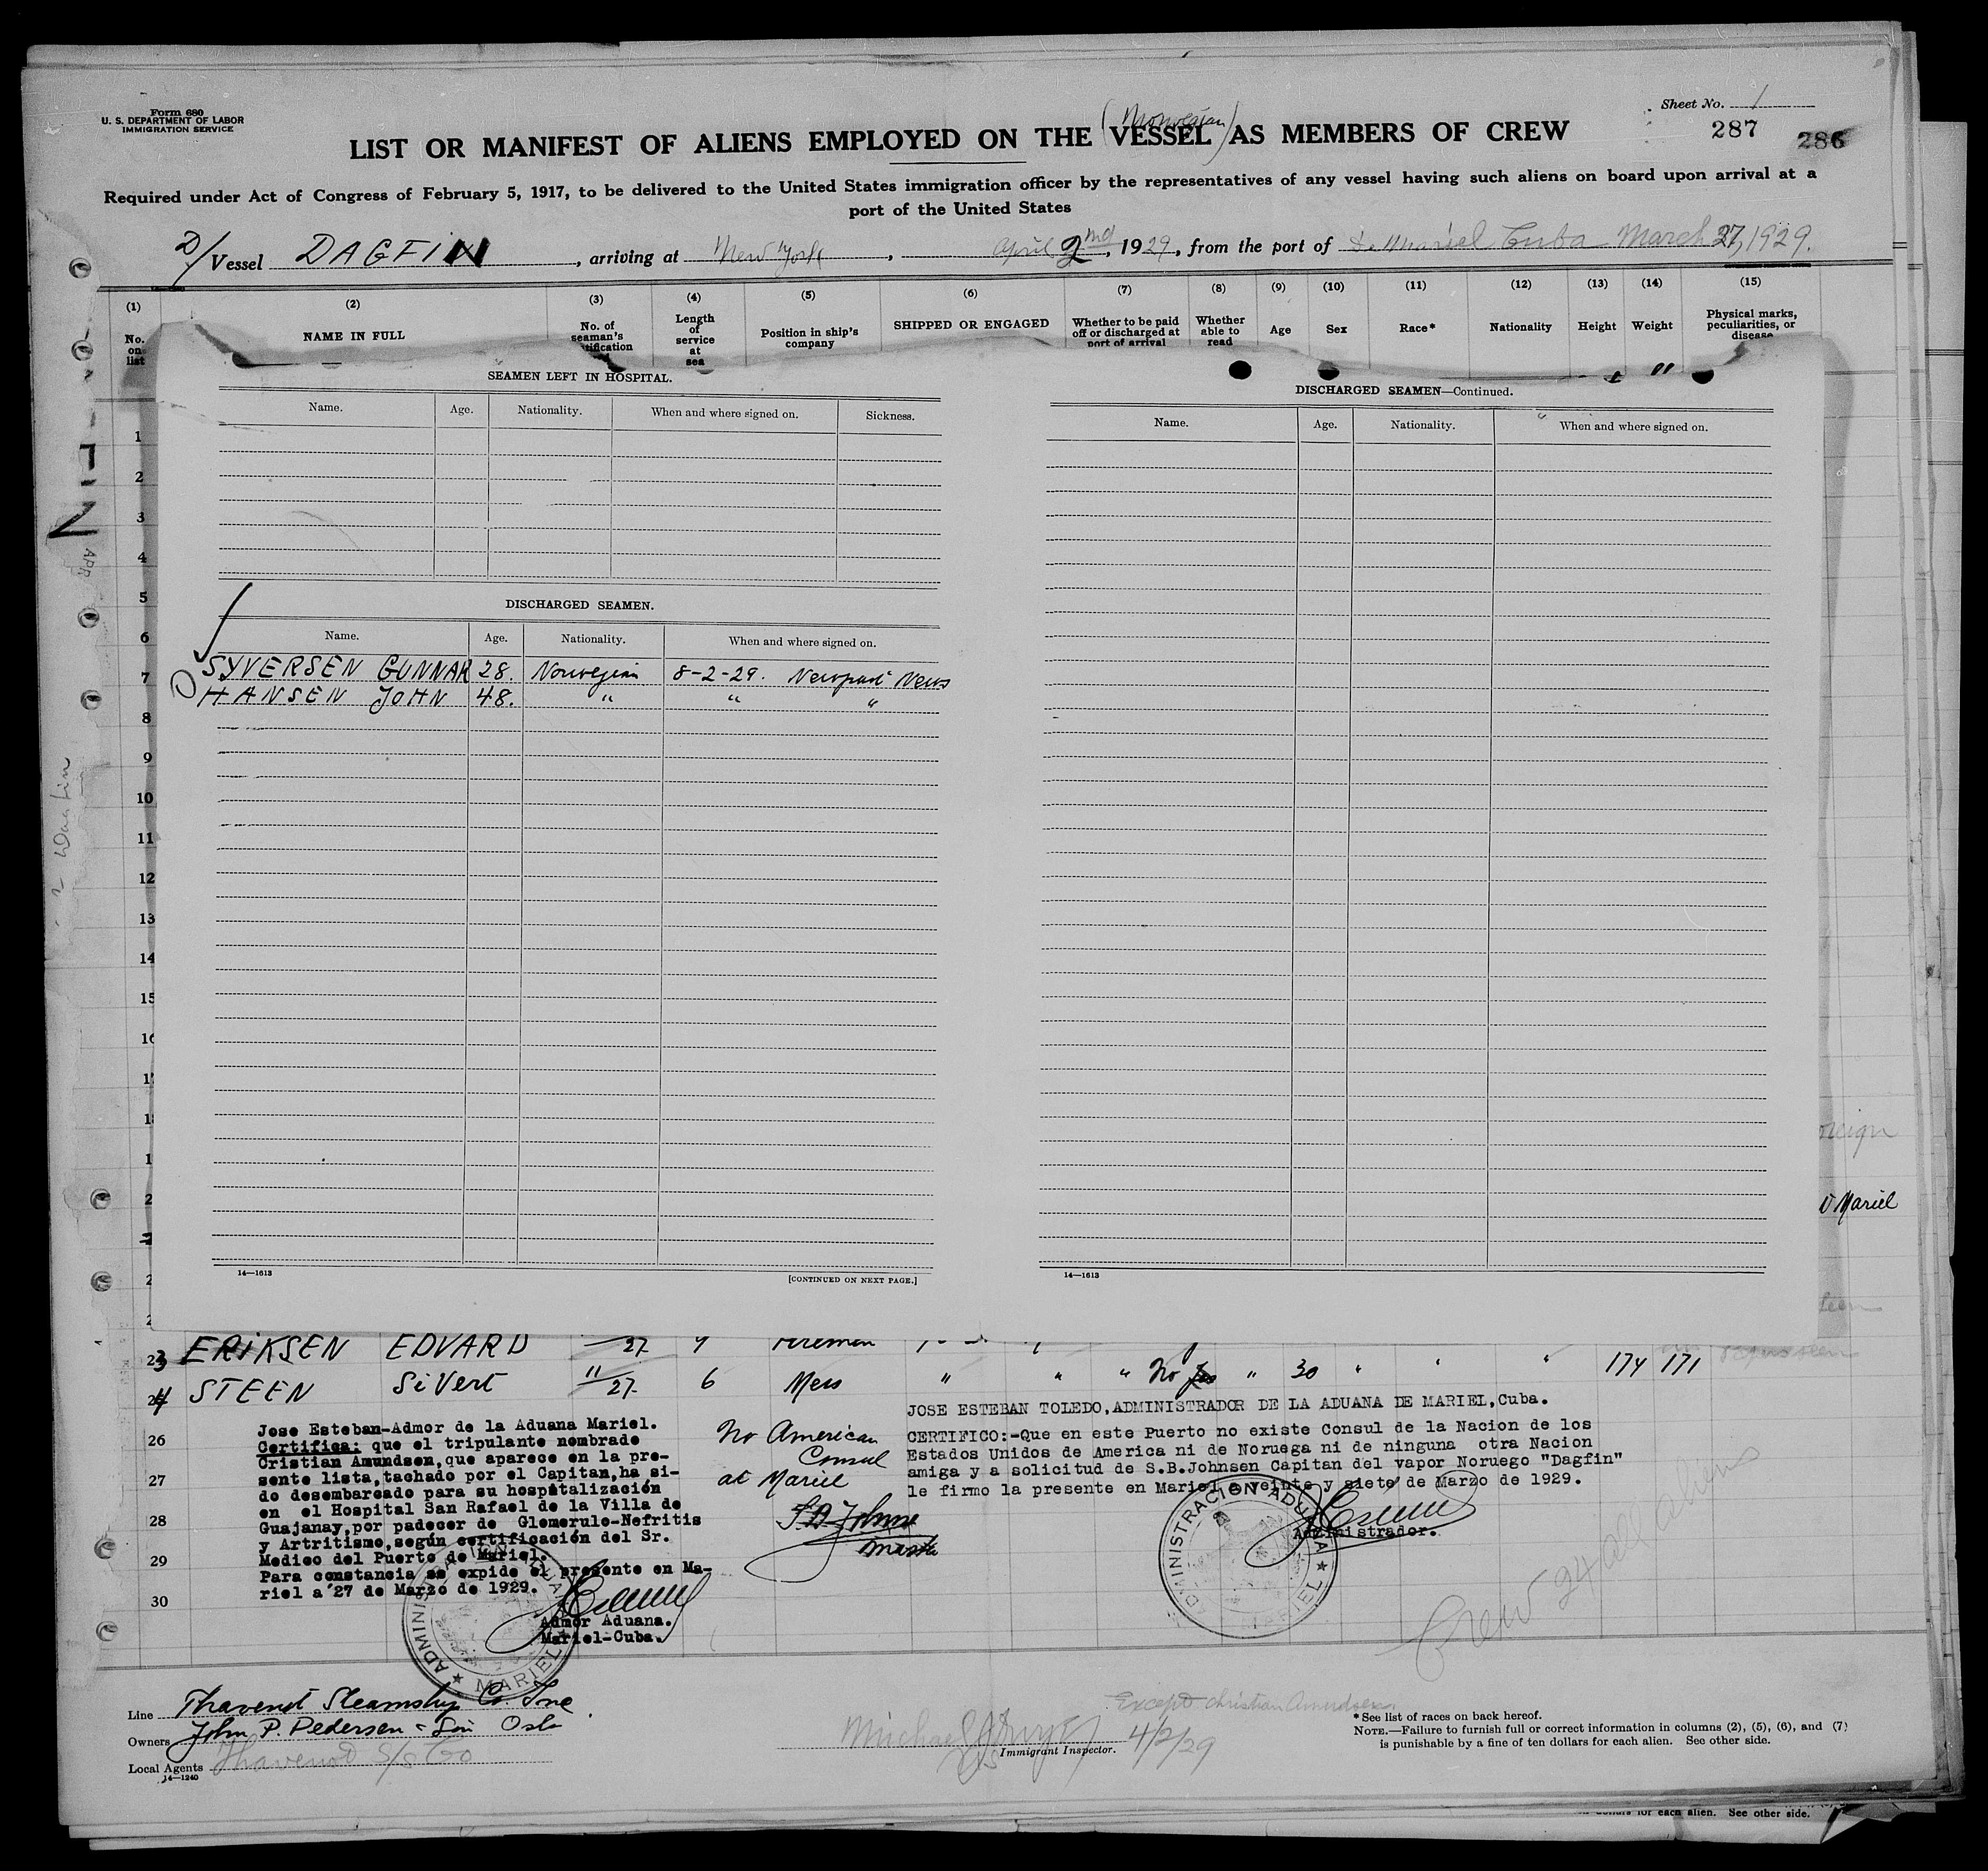 Form 680
U. S. DEPARTMENT OF LABOR
IMMIGRATION SERVICE
Sheet No. 1
(Norwegian)
LIST OR MANIFEST OF ALIENS EMPLOYED ON THE VESSEL AS MEMBERS OF CREW
287 286
Required under Act of Congress of February 5, 1917, to be delivered to the United States immigration officer by the representatives of any vessel having such aliens on board upon arrival at a
port of the United States
D/Vessel DAGFIN, arriving at New York, April 2nd, 1929, from the port of Mariel Cuba March 27, 1929.
(1) (2) (3) (4) (5) (6) (7) (8) (9) (10) (11) (12) (13) (14) (15)
No. on list
NAME IN FULL
No. of seaman's
Length of service at sea
Position in ship's company
SHIPPED OR ENGAGED
Whether to be paid off or discharged at port of arrival
Whether able to read
Age
Sex
Race*
Nationality
Height
Weight
Physical marks, peculiarities, or disease
SEAMEN LEFT IN HOSPITAL.
Name. Age. Nationality. When and where signed on. Sickness.
DISCHARGED SEAMEN—Continued.
Name. Age. Nationality. When and where signed on.
1
2
3
4
5
6
7
8
9
10
11
12
13
14
15
DISCHARGED SEAMEN.
Name. Age. Nationality. When and where signed on.
SYVERSEN GUNNAR 28. Norwegian 8-2-29. Newport News
HANSEN JOHN 48. " " "
APR
FIN
Mariel
14—1613
[CONTINUED ON NEXT PAGE.]
14—1613
23 ERIKSEN EDVARD 27 Firemen
STEEN Sivert 11/27 6 Mess " " " No Yes " 30 " " " 174 171
26
27
28
29
30
Jose Esteban-Admor de la Aduana Mariel.
Certifica: que el tripulante nombrado
Cristian Amundsen, que aparece en la pre-
sente lista,tachado por el Capitan,ha si-
do desembarcado para su hospitalización
en el Hospital San Rafael de la Villa de
Guajanay,por padecer de Glomerulo-Nefritis
y Artritismo,según certificación del Sr.
Medico del Puerto de Mariel.
Para constancia se expide el presente en Ma-
riel a 27 de Marzo de 1929.
Admor Aduana.
Mariel-Cuba.
No American
Consul
at Mariel
S.B. Johnsen
Master
JOSE ESTEBAN TOLEDO,ADMINISTRADOR DE LA ADUANA DE MARIEL,Cuba.
CERTIFICO:-Que en este Puerto no existe Consul de la Nacion de los
Estados Unidos de America ni de Noruega ni de ninguna otra Nacion
amiga y a solicitud de S.B.Johnsen Capitan del vapor Noruego "Dagfin"
le firmo la presente en Mariel a veinte y siete de Marzo de 1929.
Administrador.
ADMINISTRACION ADUANA ★ MARIEL
ADMINISTRACION ADUANA ★ MARIEL ★
Crew 24 all aliens
Except Christian Amundsen
Line Thavenot Steamship Co. Inc.
Owners John P. Pedersen & Son Oslo
Local Agents Thavenot S/S Co
14—1240
Michael
Immigrant Inspector. 4/2/29
* See list of races on back hereof.
NOTE.—Failure to furnish full or correct information in columns (2), (5), (6), and (7)
is punishable by a fine of ten dollars for each alien. See other side.
dollars for each alien. See other side.